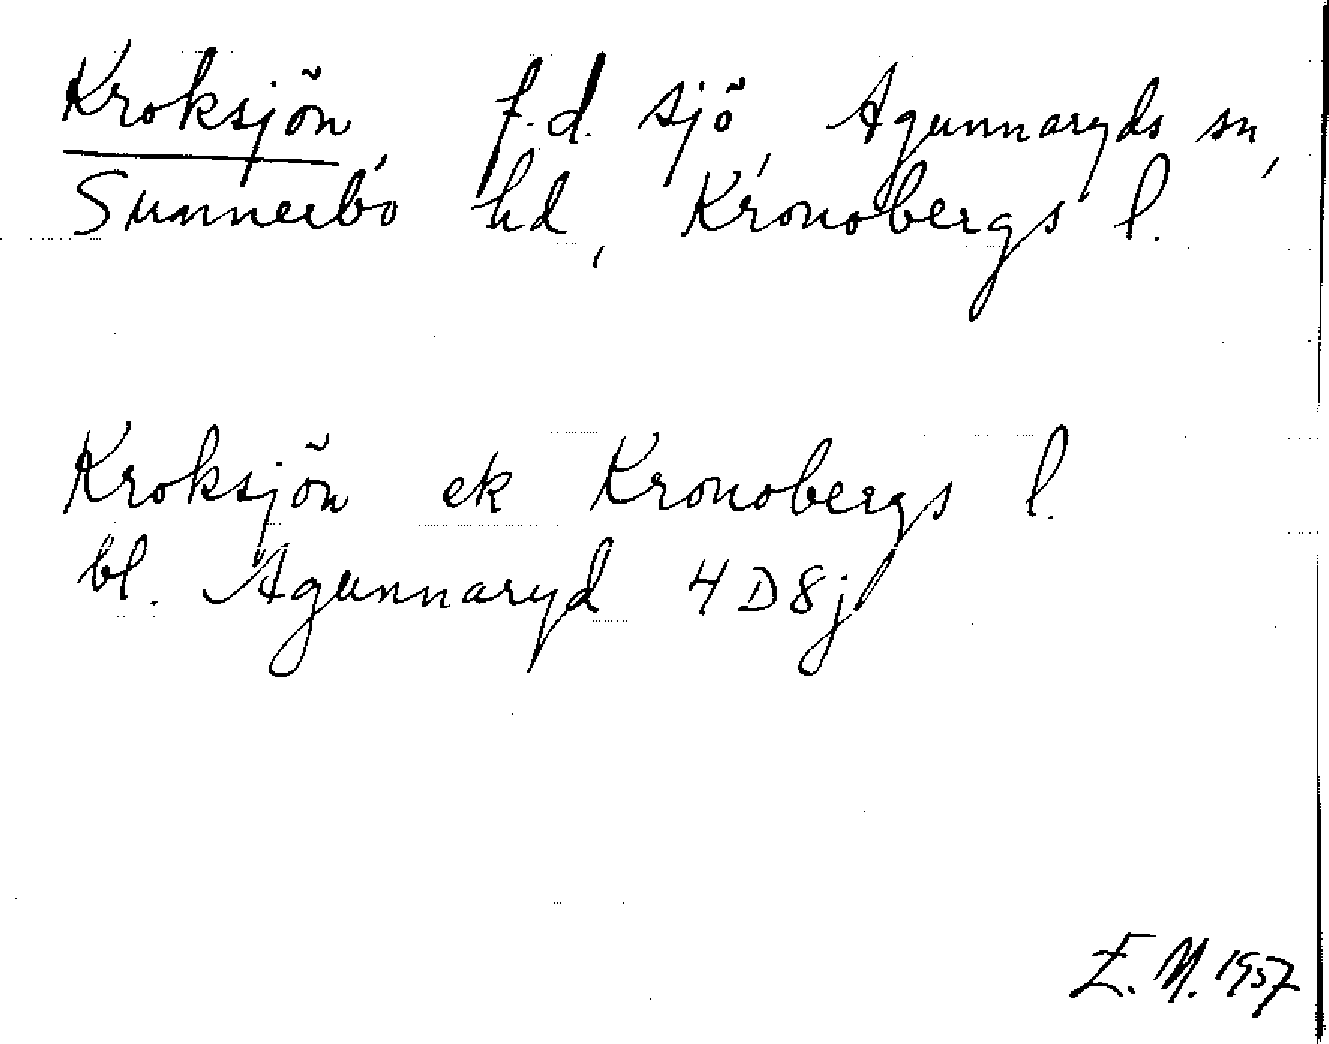 Kroksjön, f.d. sjö, Agunnaryds sn,
Sunnerbo hd, Kronobergs l.
Kroksjön ek Kronobergs l.
bl. Agunnaryd 4D8j
E.N. 1957